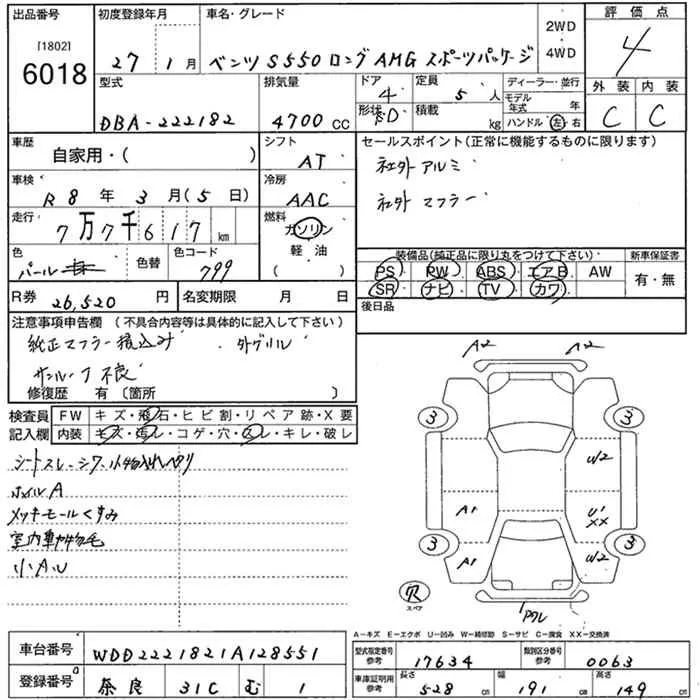 出品番号 初度登録年月 車名・グレード 評価点
[1802]
6018
27 1月 ベンツ S550 ロング AMG スポーツパッケージ
2WD
4WD
4
型式 排気量 ドア 定員 ディーラー・並行 外装 内装
DBA-222182 4700cc 4 5人
モデル年式 年
形状 積載 kg ハンドル 左・右
C C
車歴 シフト セールスポイント(正常に機能するものに限ります)
自家用・( ) AT
社外 アルミ
車検 冷房
R8年 3月(5日) AAC
社外 マフラー
走行 燃料
7万7千617km ガソリン
軽油
( )
色 色替 色コード
パール 799
装備品(純正品に限り丸をつけて下さい) 新車保証書
PS PW ABS エアB AW 有・無
SR ナビ TV カワ
R券 26,520円 名変期限 月 日
後日品
注意事項申告欄(不具合内容等は具体的に記入して下さい)
純正マフラー積込み 外グリル
サンルーフ不良
修復歴 有〔箇所 〕
検査員 FW キズ・飛石・ヒビ割・リペア跡・X要
記入欄 内装 キズ・汚レ・コゲ・穴・スレ・キレ・破レ
シートスレ・シワ・小物入れヘタリ
ホイルA
メッキモールくすみ
室内動物毛
小A.U
A2 A2
3 3
W2
A1 U1
XX
3 3
A1 W2
スペア
A-キズ E-エクボ U-凹み W-補修跡 S-サビ C-腐食 XX-交換済
車台番号 WDD2221821A128551
型式指定番号 参考 17634 類別区分番号 参考 0063
登録番号 奈良 31C む 1
車庫証明用 参考 長さ 528cm 幅 191cm 高さ 149cm